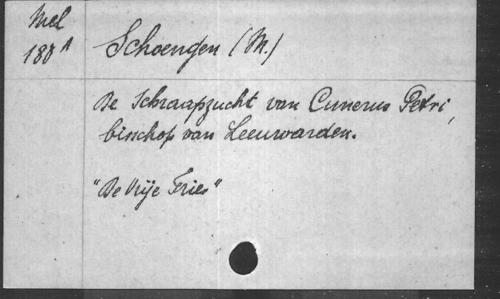 Mel
188 A
Schoengen (M.)
De Schraapzucht van Cunerus Petri,
bisschop van Leeuwarden.
"De Vrije Fries"